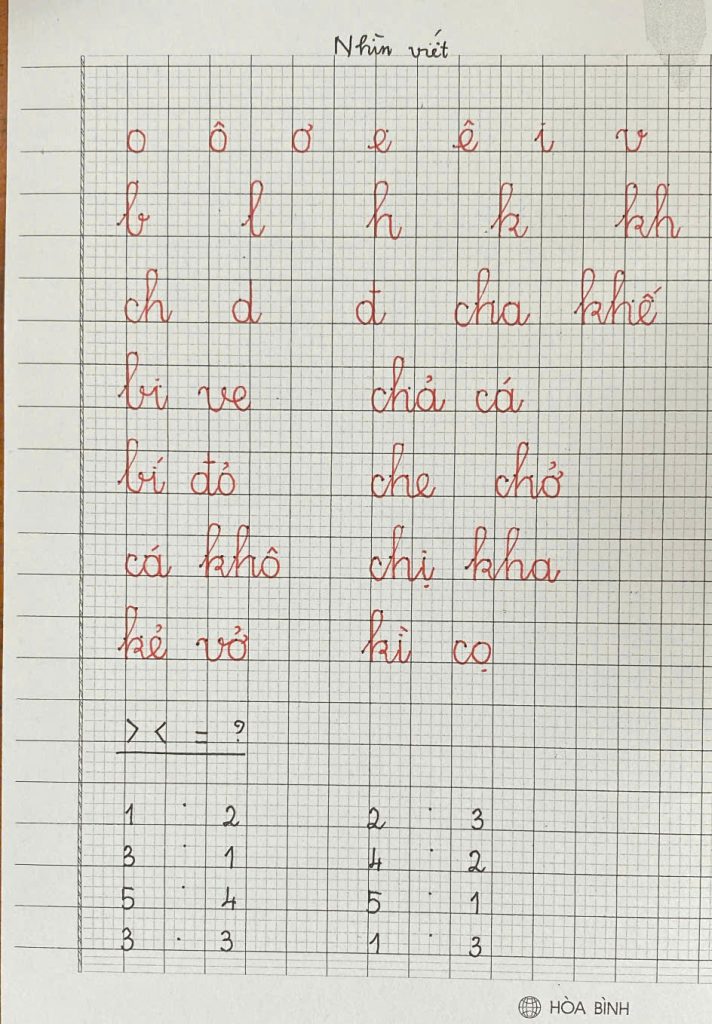 Nhìn viết
o ô ơ e ê i v
b l h k kh
ch d đ cha khế
bi ve chả cá
bí đỏ che chở
cá khô chị kha
kẻ vở kì cọ
> < = ?
1 . 2 2 . 3
3 . 1 4 . 2
5 . 4 5 . 1
3 . 3 1 . 3
HÒA BÌNH